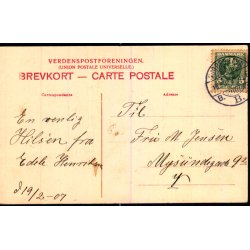 VERDENSPOSTFORENINGEN.
(UNION POSTALE UNIVERSELLE)
BREVKORT — CARTE POSTALE
Correspondance.
Adresse.
En venlig
Hilsen fra
Edele Henriksen
d 19/2-07
Til
Frk M Jensen
Mysundegade 9
V